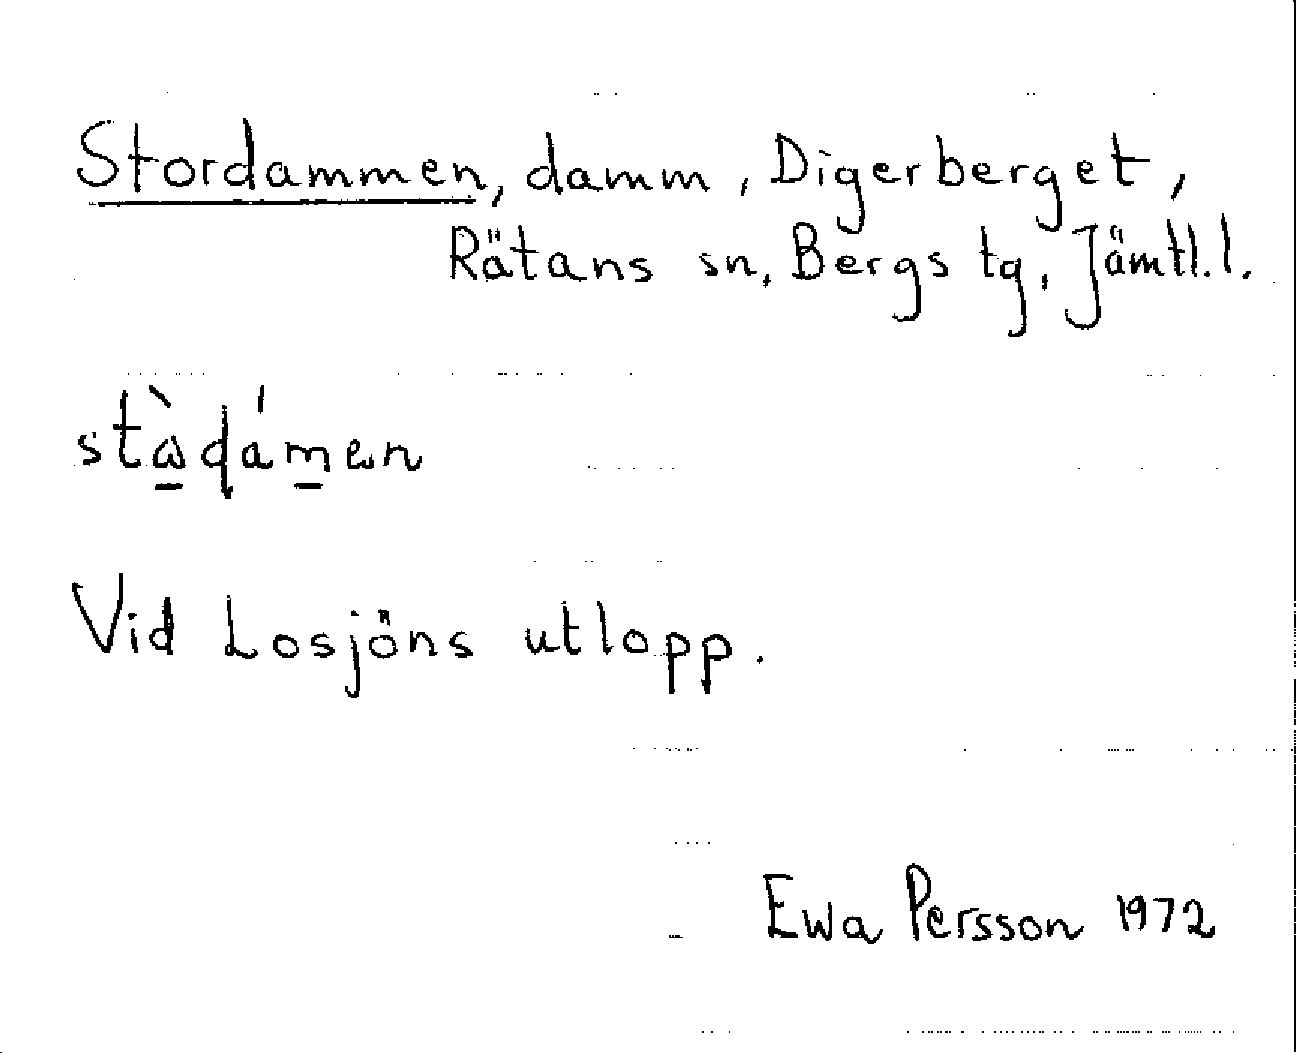 Stordammen, damm, Digerberget,
Rätans sn, Bergs tg, Jämtl.l.
Vid Losjöns utlopp.
Ewa Persson 1972